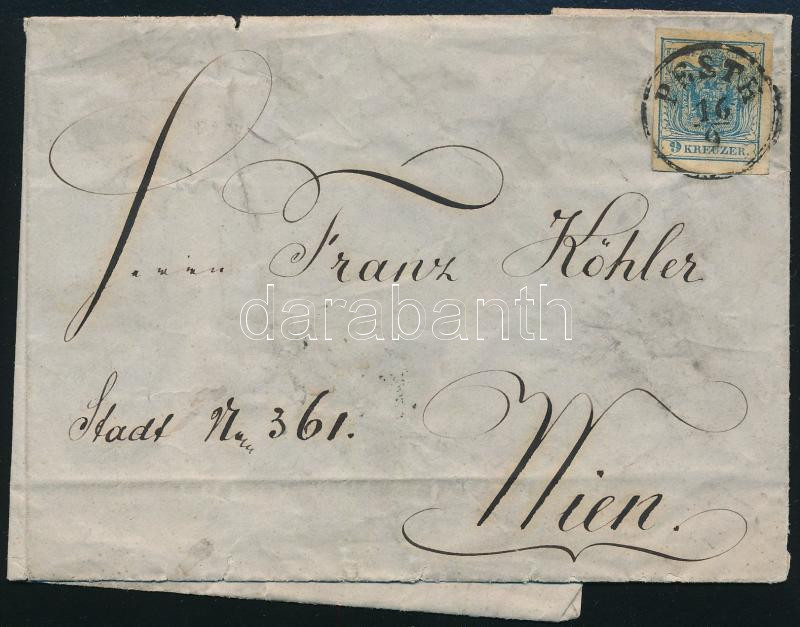 PESTH
16
9
9 KREUZER.
Herrn Franz Köhler
darabanth
Stadt Nro 361.
Wien.